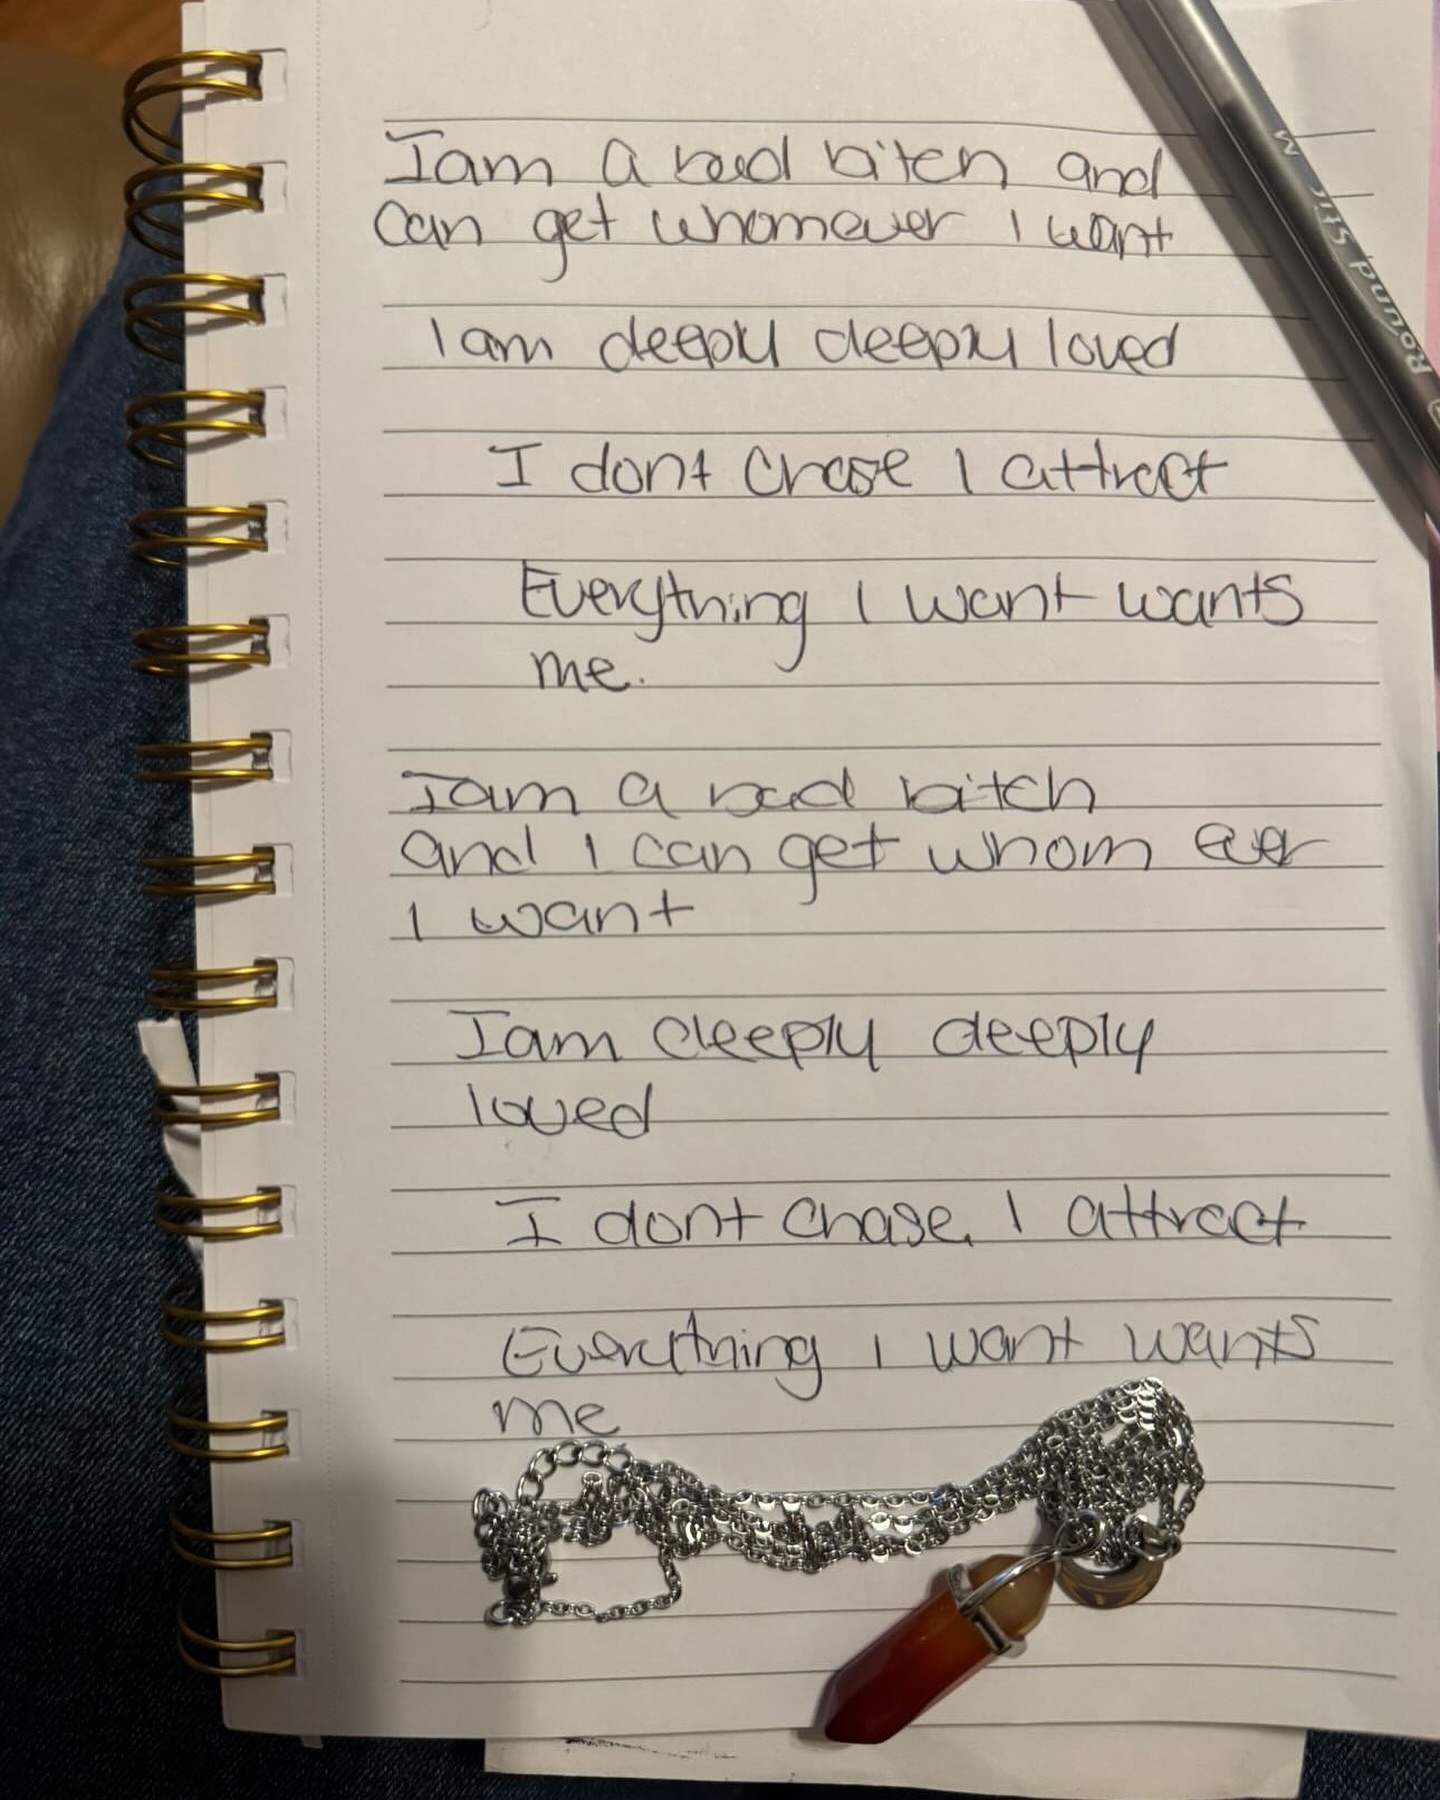 I am a bad bitch and
can get whomever I want
I am deeply deeply loved
I dont chase I attract
Everything I want wants
me.
I am a bad bitch
and I can get whom ever
I want
I am deeply deeply
loved
I dont chase. I attract
Everything I want wants
me
Round Stic M